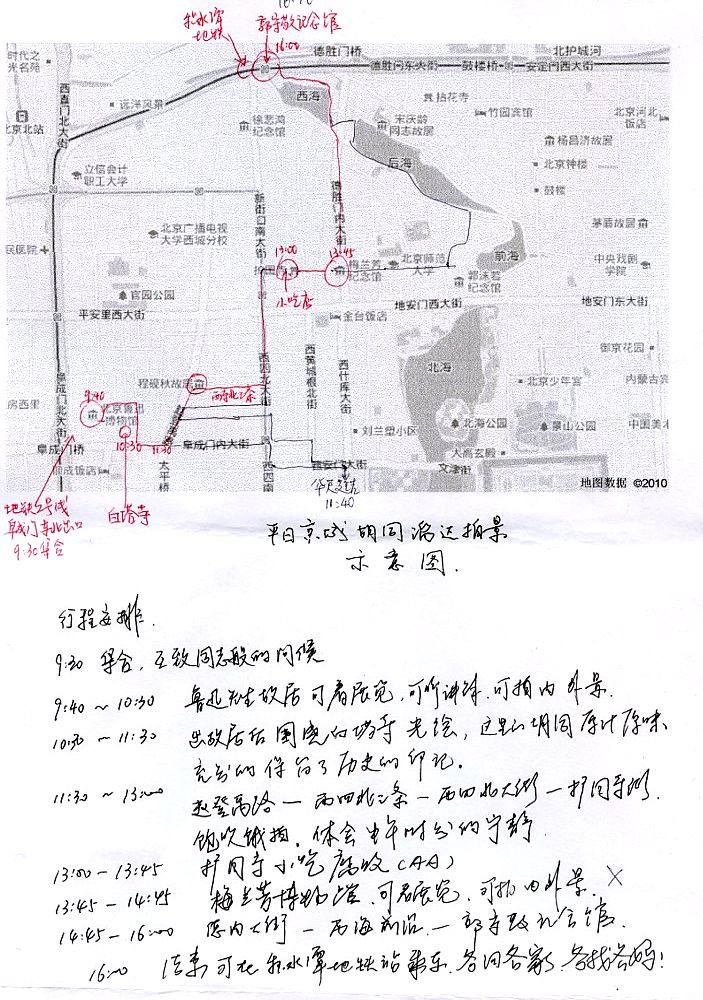 积水潭
地铁
郭守敬纪念馆
16:00
德胜门桥
北护城河
时代之
光名苑
德胜门东大街
鼓楼桥
安定门西大街
西直门北大街
远洋风景
西海
竹园宾馆
北京河北
饭店
北京北站
徐悲鸿
纪念馆
宋庆龄
同志故居
杨昌济故居
后海
北京钟楼
立信会计
职工大学
鼓楼
新街口南大街
德胜门内大街
北京广播电视
大学西城分校
茅盾故居
13:00
13:45
民医院
梅兰芳
纪念馆
北京师范
大学
前海
中央戏剧
学院
郭沫若
纪念馆
小吃店
官园公园
地安门西大街
地安门东大街
平安里西大街
金台饭店
北海
御京花园
西四北大街
西黄城根北街
西什库大街
程砚秋故居
西四北二条
北京少年宫
内蒙古宾
房西里
阜成门北大街
9:40
北京鲁迅
博物馆
北海公园
景山公园
中国美
刘兰塑小区
10:30
11:30
阜成门桥
阜成门内大街
大高玄殿
太平桥
西四南
文津街
地图数据 ©2010
11:40
地铁2号线
阜成门东北出口
9:30集合
白塔寺
平日京城胡同溜达拍景
示意图.
行程安排.
9:30 集合,互致同志般的问候
9:40 ~ 10:30 鲁迅先生故居可看展览,可听讲课,可拍内外景.
10:30 ~ 11:30 出故居后围绕白塔寺光绘,这里的胡同原汁原味
充分的保留了历史的印记.
11:30 ~ 13:00 赵登禹路一西四北二条一西四北大街一护国寺街.
饱吹饿拍,体会中午时分的宁静
13:00 - 13:45 护国寺小吃腐败(AA)
13:45 - 14:45 梅兰芳博物馆,可看展览,可拍内外景. X
14:45 - 16:00 德内大街 - 西海前沿 - 郭守敬纪念馆.
16:00 结束可在积水潭地铁站乘车.各回各家,各找各妈!